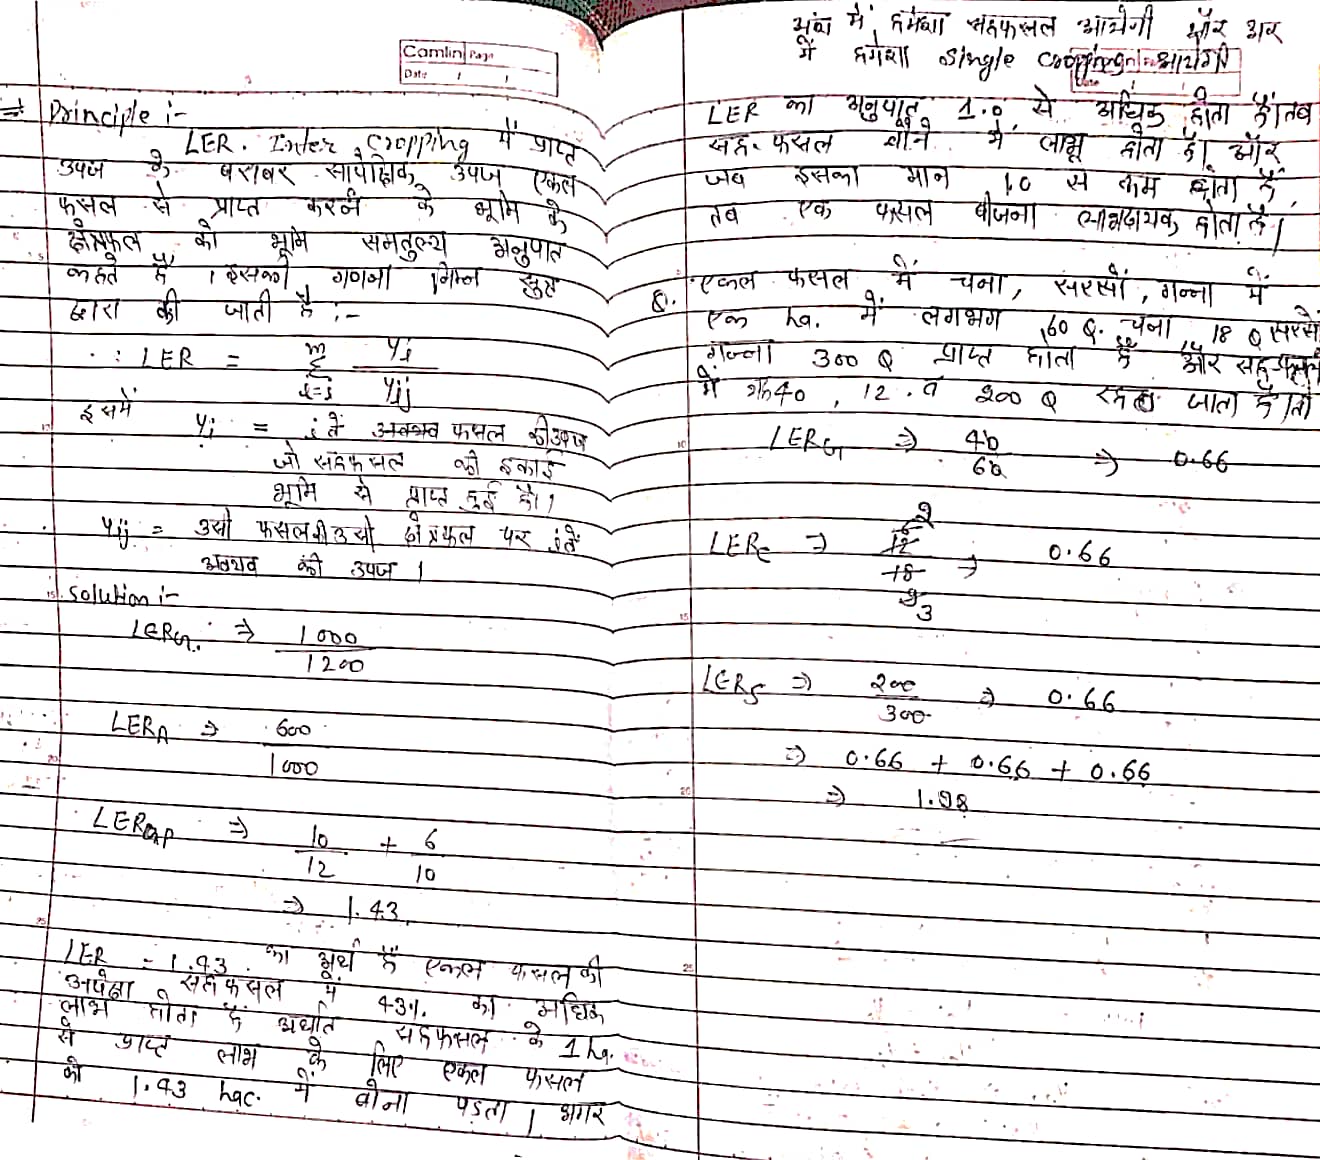 Camlin Page
Date / /
⇒ Principle :-
LER. Inter Cropping में प्राप्त
उपज के बराबर सापेक्षिक उपज एकल
फसल से प्राप्त करने के भूमि के
क्षेत्रफल को भूमि समतुल्य अनुपात
कहते हैं । इसकी गणना निम्न सूत्र
द्वारा की जाती है :-
∴ LER = m Σ i=j yi / yij
इसमें yi = iवें अवयव फसल की उपज
जो सहफसल की इकाई
भूमि से प्राप्त हुई हो।
yij = उसी फसल की उसी क्षेत्रफल पर iवें
अवयव की उपज ।
Solution :-
LERG. ⇒ 1000 / 1200
LERA ⇒ 600 / 1000
LER ⇒ 10 / 12 + 6 / 10
⇒ 1.43.
LER = 1.43 का अर्थ है एकल फसल की
अपेक्षा सहफसल में 43% का अधिक
लाभ होता है अर्थात सहफसल के 1 ha.
से प्राप्त लाभ के लिए एकल फसल
को 1.43 hac. में बोना पड़ता । अगर
अंश में हमेशा सहफसल आयेगी और हर
में हमेशा single cropping आयेगी
Date
LER का अनुपात 1.0 से अधिक होता है। तब
सह-फसल बोने में लाभ होता है। और
जब इसका मान 1.0 से कम होता है,
तब एक फसल बोजना लाभदायक होता है।
Q. एकल फसल में चना, सरसों, गन्ना में
एक ha. में लगभग 60 Q. चना, 18 Q सरसों
गन्ना 300 Q प्राप्त होता है और सह-फसल
में 40, 12. व 200 Q जाता है। तो
LERG ⇒ 40 / 60 ⇒ 0.66
LERC ⇒ 12 / 18 ⇒ 0.66
6 2
9 3
LERS ⇒ 200 / 300 ⇒ 0.66
⇒ 0.66 + 0.66 + 0.66
⇒ 1.98